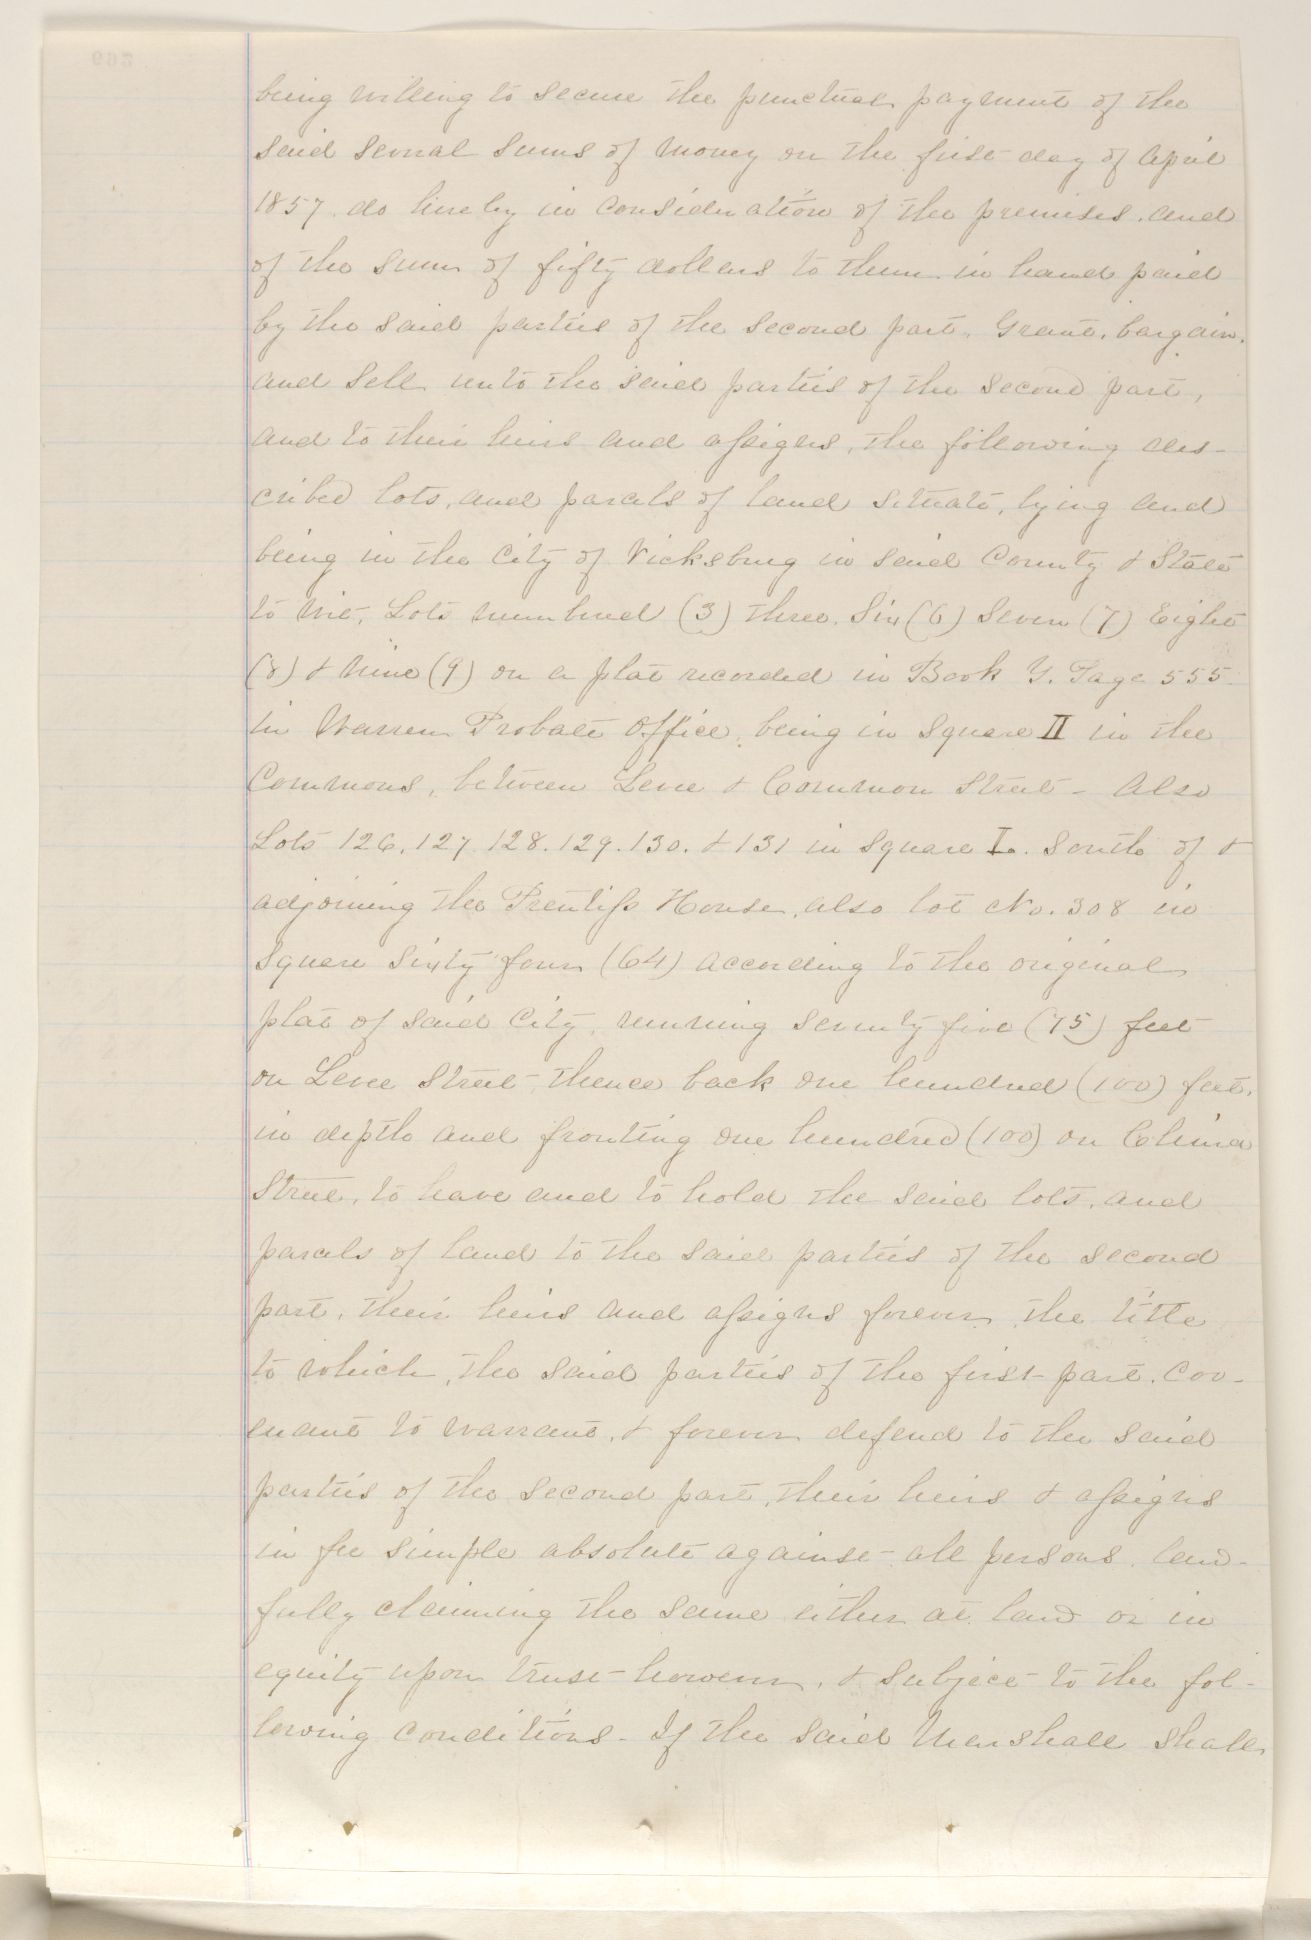 being willing to secure the punctual payment of the
said several sums of money on the first day of April
1857. do hereby in consideration of the premises. and
of the sum of fifty dollars to them in hand paid
by the said parties of the second part. Grant, bargain.
and sell unto the said parties of the second part,
and to their heirs and assigns, the following des-
cribed lots, and parcels of land situate, lying and
being in the City of Vicksburg in said County & State
to wit, Lots numbered (3) three. Six (6) Seven (7) Eight
(8) & Nine (9) on a plat recorded in Book Y. Page 555
in Warren Probate Office, being in Square II in the
Commons, between Levee & Common Street - Also
Lots 126, 127 128. 129. 130. & 131 in Square I. South of &
adjoining the Prentiss House, also lot No. 308 in
Square Sixty four (64) according to the original
plat of said City, running seventy five (75) feet
on Levee Street - thence back one hundred (100) feet,
in depth and fronting one hundred (100) on China
Street, to have and to hold the said lots, and
parcels of land to the said parties of the second
part, their heirs and assigns forever the title
to which, the said parties of the first part. cov-
enant to warrant, & forever defend to the said
parties of the second part, their heirs & assigns
in fee simple absolute against all persons law-
fully claiming the same either at law or in
equity upon trust however, & subject to the fol-
lowing conditions - If the said Marshall shall